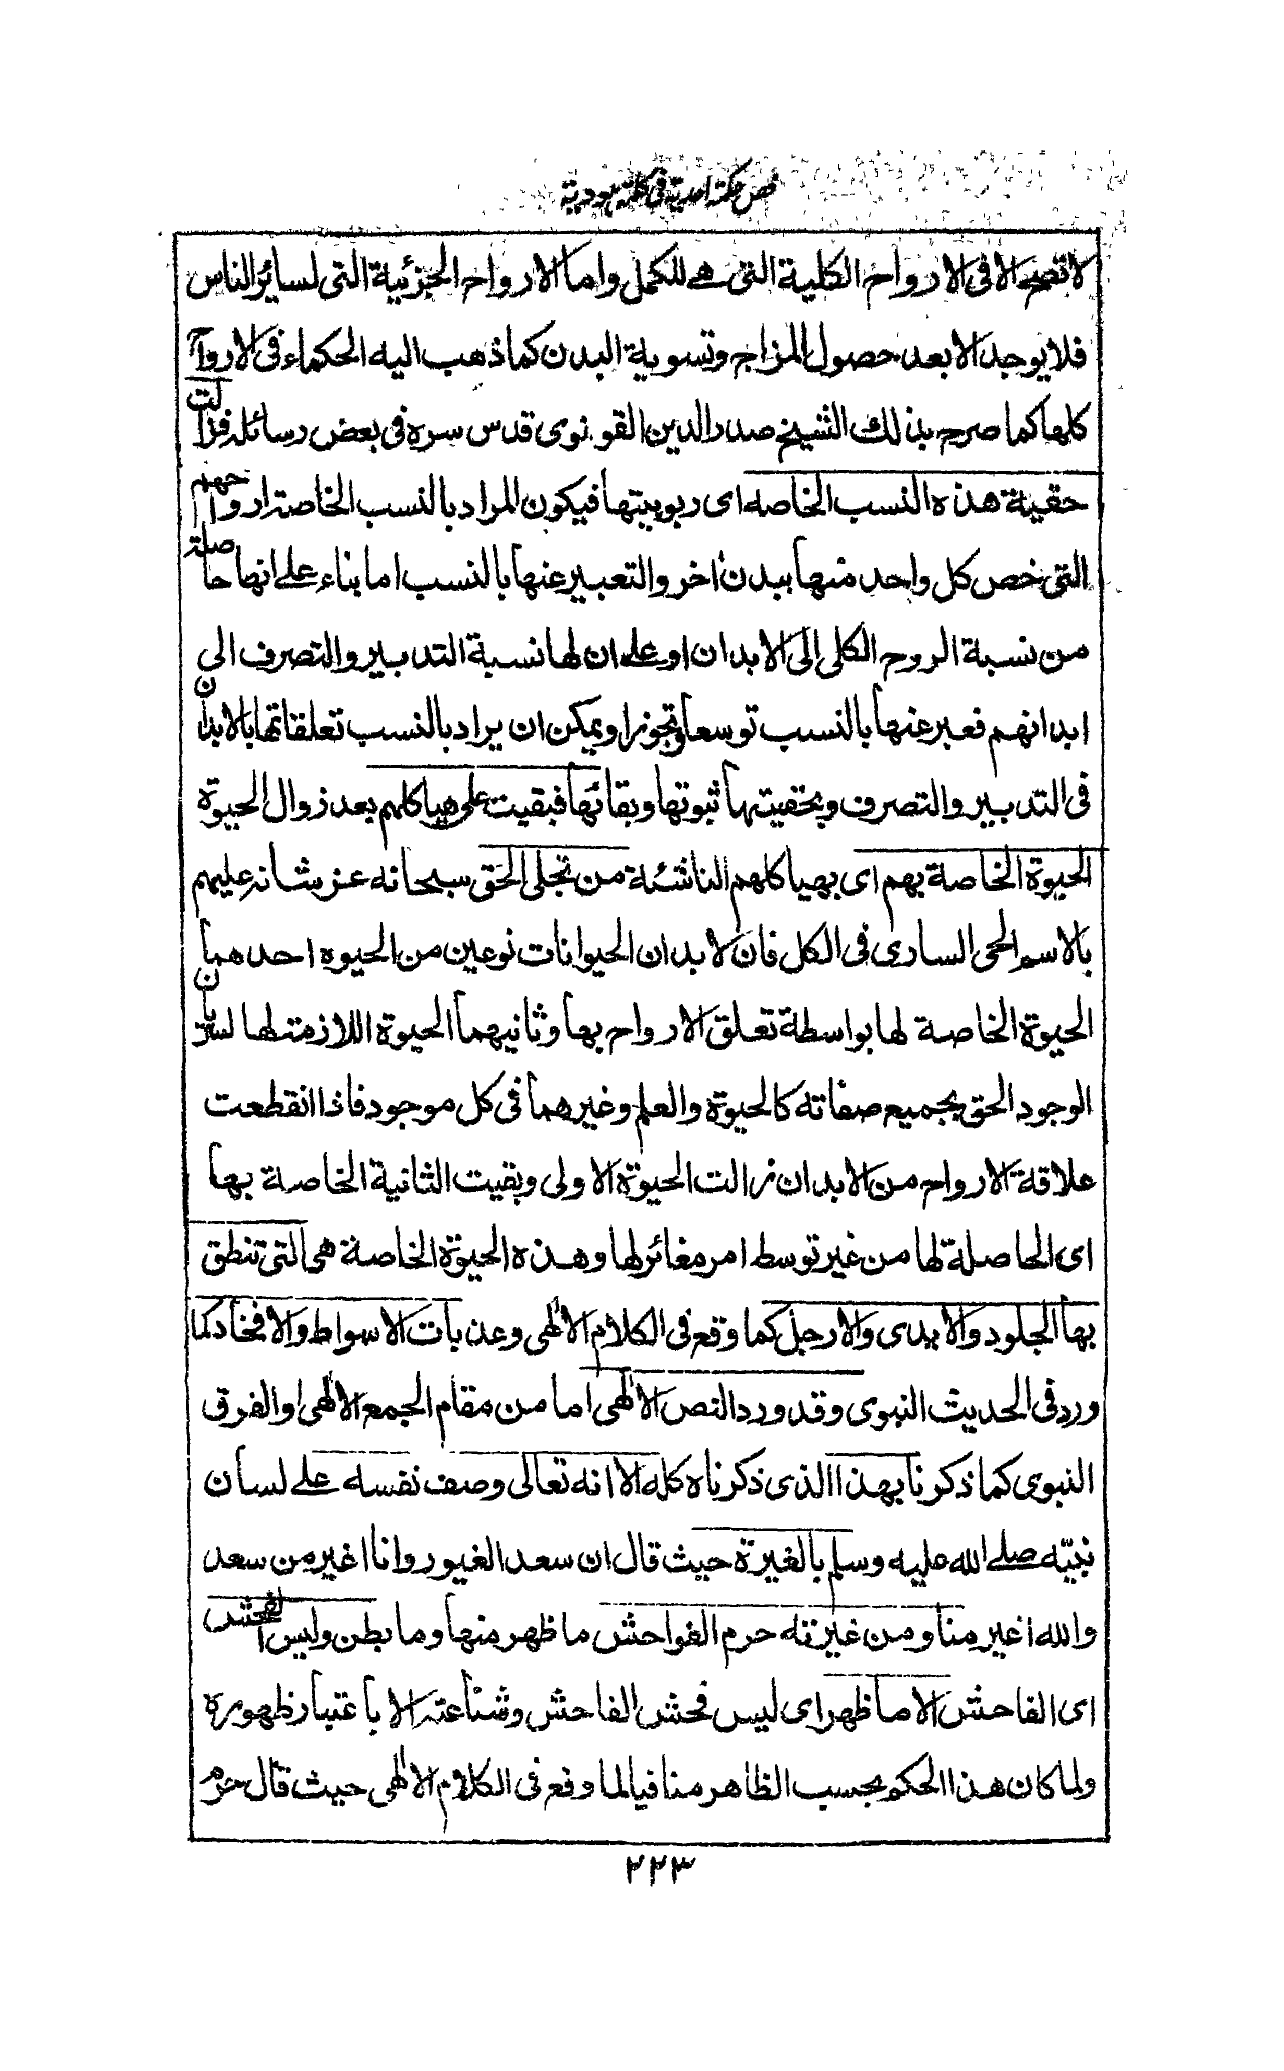 فص حكمة احدية فى كلمة هودية
لا تصح الا فى الارواح الكلية التى هے للكمل واما الارواح الجزئية التى لسائر الناس
فلا يوجد الا بعد حصول المزاج وتسوية البدن كما ذهب اليه الحكماء فى الارواح
كلها كما صرح بذلك الشيخ صدر الدين القونوى قدس سره فى بعض رسائله فزالت
حقية هذه النسب الخاصه اى ربوبيتها فيكون المراد بالنسب الخاصة ارواحهم
التى خص كل واحد منها ببدن اخر والتعبير عنها بالنسب اما بناء علے انها حاصلة
من نسبة الروح الكلى الى الابدان او علے ان لها نسبة التدبير والتصرف الى
ابدانهم فعبر عنها بالنسب توسعا وتجوزا ويمكن ان يراد بالنسب تعلقاتها بالابدان
فى التدبير والتصرف وبحقيتها ثبوتها وبقائها فبقيت على هياكلهم بعد زوال الحيوة
الحيوة الخاصة بهم اى بهياكلهم الناشئة من تجلى الحق سبحانه عز شانه عليهم
بالاسم الحى السارى فى الكل فان لابدان الحيوانات نوعين من الحيوه احدهما
الحيوة الخاصة لها بواسطة تعلق الارواح بها وثانيهما الحيوة اللازمة لها لسريان
الوجود الحق بجميع صفاته كالحيوة والعلم وغيرهما فى كل موجود فاذا انقطعت
علاقة الارواح من الابدان زالت الحيوة الاولى وبقيت الثانية الخاصة بها
اى الحاصلة لها من غير توسط امر مغائر لها وهذه الحيوة الخاصة هى التى تنطق
بها الجلود والايدى والارجل كما وقع فى الكلام الالهى وعذبات الاسواط والافخاذ كما
ورد فى الحديث النبوى وقد ورد النص الالهى اما من مقام الجمع الالهى او الفرق
النبوى كما ذكرنا بهذا الذى ذكرناه كله الا انه تعالى وصف نفسه علے لسان
نبيّه صلے الله عليه وسلم بالغيرة حيث قال ان سعد الغيور وانا اغير من سعد
والله اغير منا ومن غيرته حرم الفواحش ما ظهر منها وما بطن وليس الفحش
اى الفاحش الا ما ظهر اى ليس فحش الفاحش وشناعته الا باعتبار ظهوره
ولما كان هذا الحكم بحسب الظاهر منافيا لما وقع فى الكلام الالهى حيث قال حرم
٢٢٣